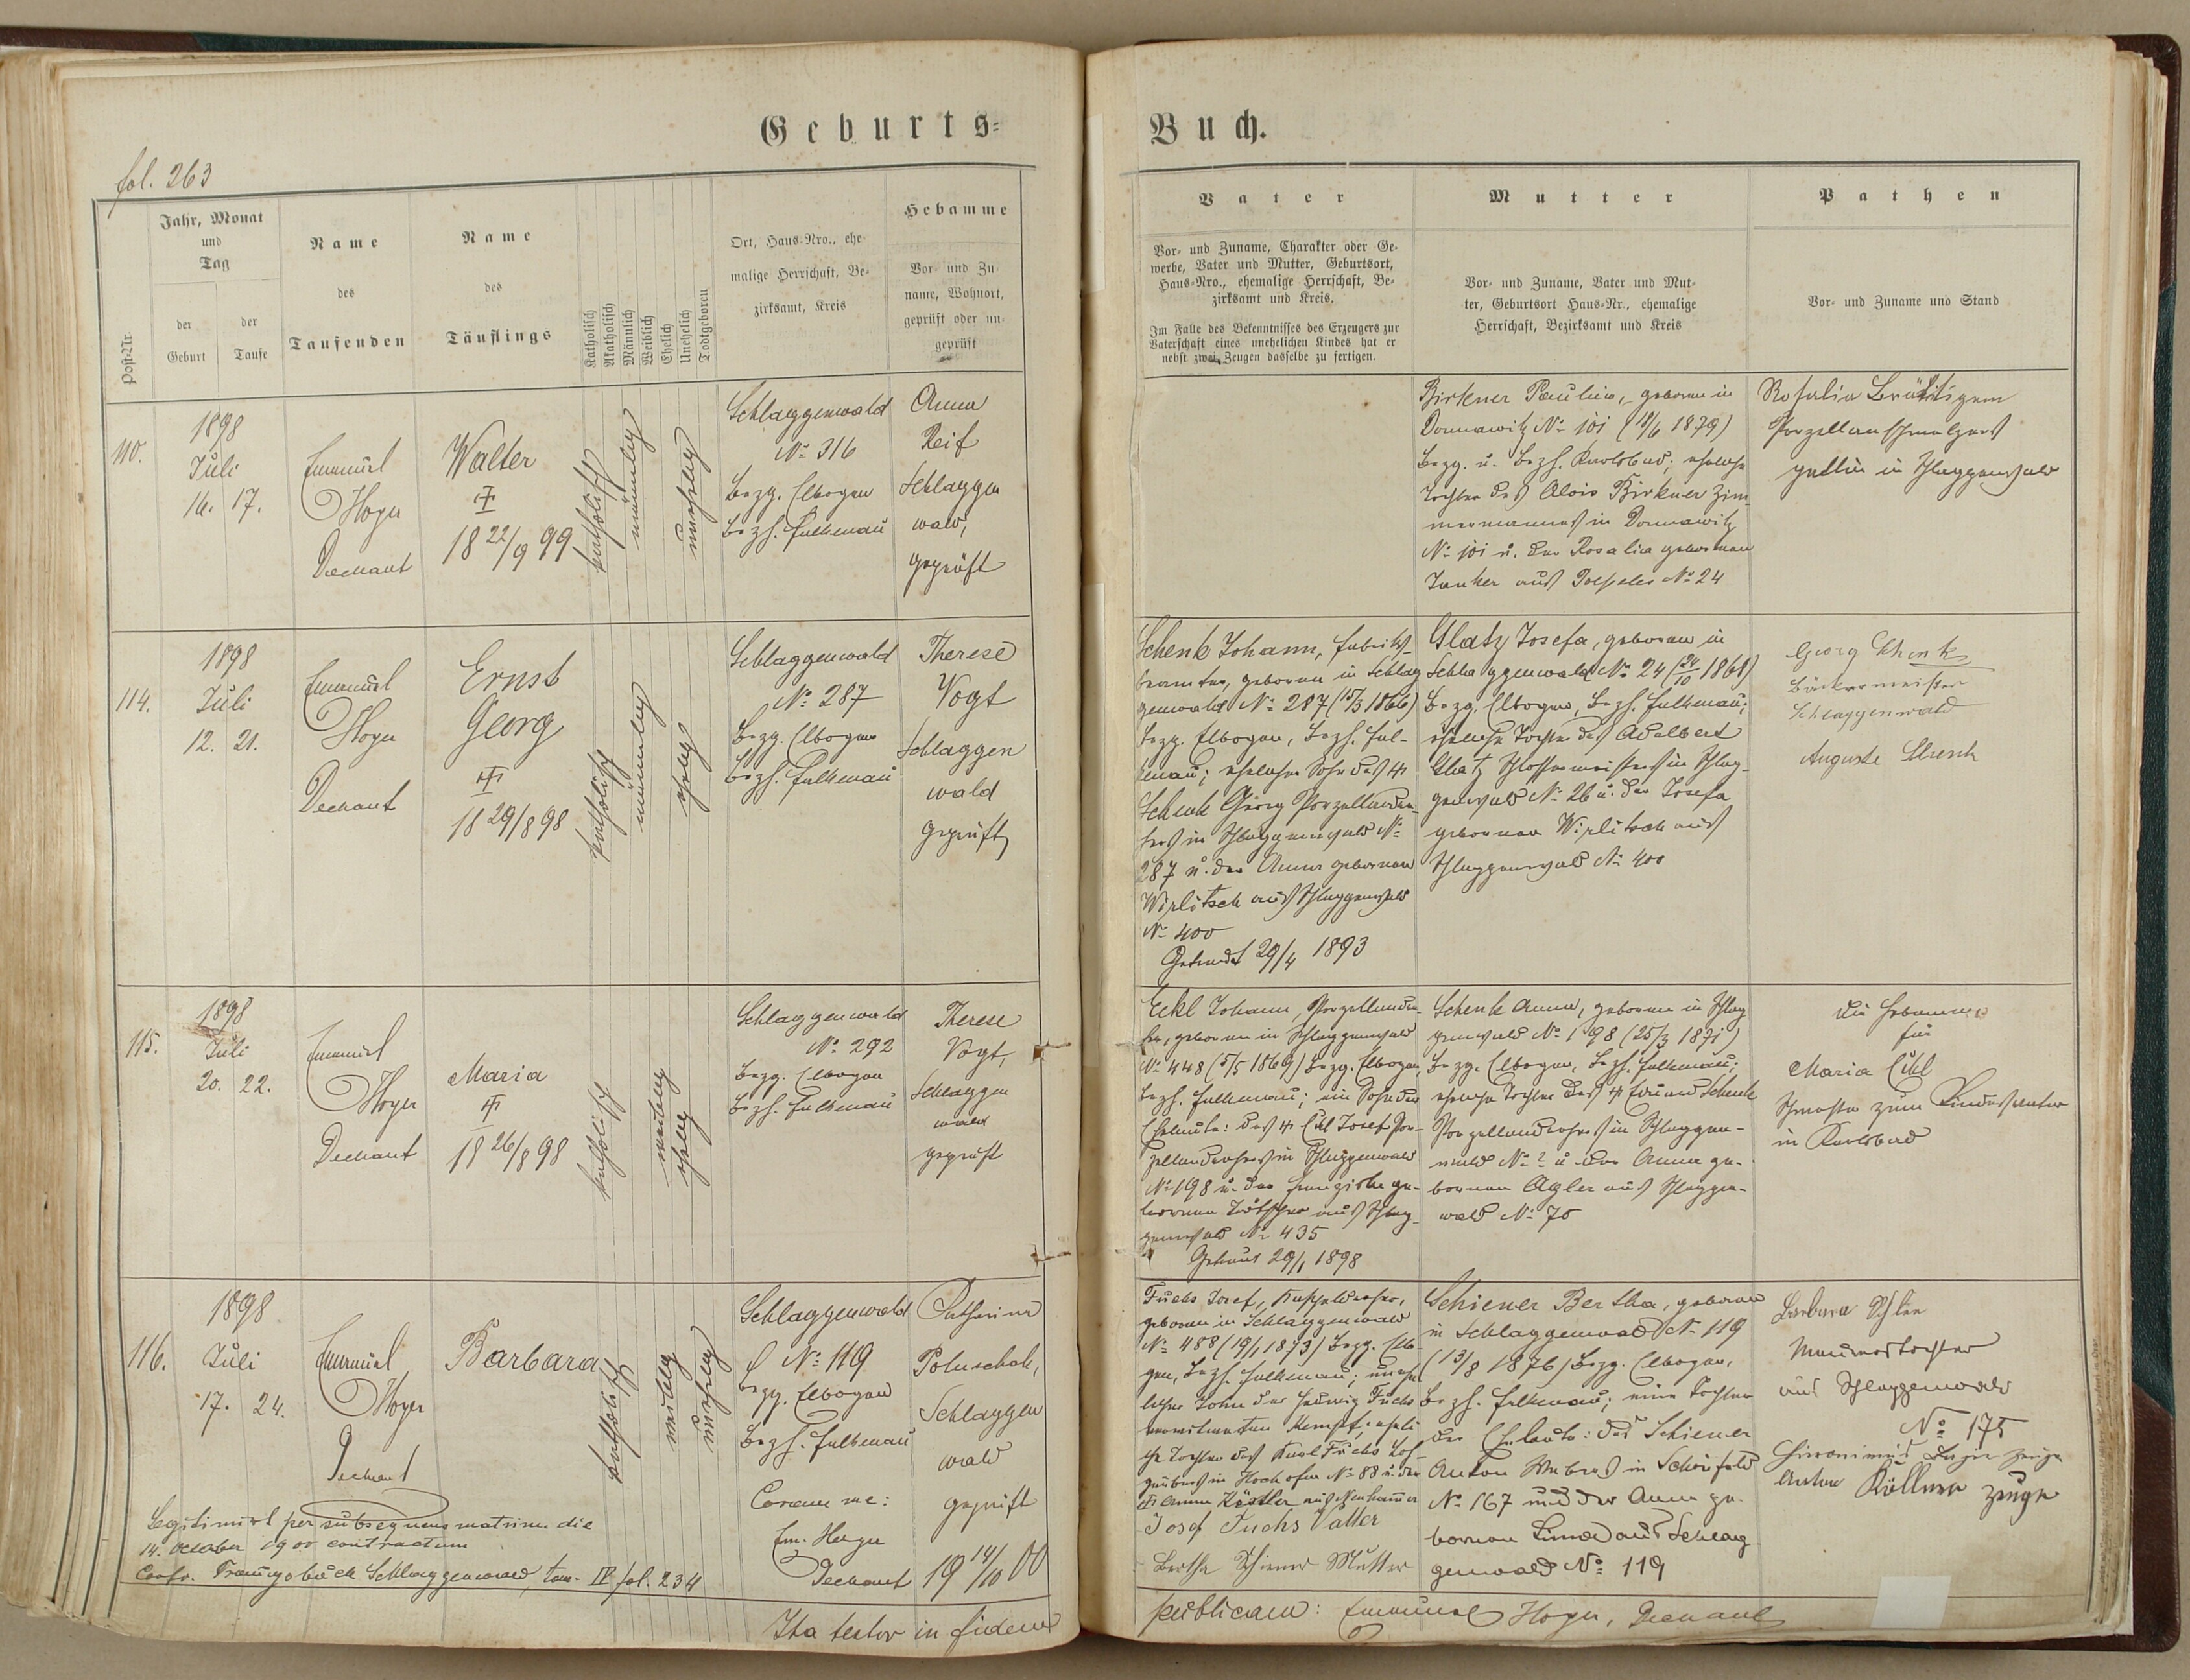 Geburts=
Buch.
fol. 263
Post-Nr.
Jahr, Monat
und
Tag
der
Geburt
der
Taufe
Name
des
Taufenden
Name
des
Täuflings
Katholisch
Akatholisch
Männlich
Weiblich
Ehelich
Unehelich
Todtgeboren
Ort, Haus-Nro., ehe-
malige Herrschaft, Be-
zirksamt, Kreis
Hebamme
Vor- und Zu-
name, Wohnort,
geprüft oder un-
geprüft
Vater
Vor- und Zuname, Charakter oder Ge-
werbe, Vater und Mutter, Geburtsort,
Haus-Nro., ehemalige Herrschaft, Be-
zirksamt und Kreis.
Im Falle des Bekenntnisses des Erzeugers zur
Vaterschaft eines unehelichen Kindes hat er
nebst zwei Zeugen dasselbe zu fertigen.
Mutter
Vor- und Zuname, Vater und Mut-
ter, Geburtsort Haus-Nr., ehemalige
Herrschaft, Bezirksamt und Kreis
Pathen
Vor- und Zuname und Stand
110.
1898
Juli
16. 17.
Emanuel
Hoyer
Dechant
Walter
18 22/9 99
katholisch
männlich
unehelich
Schlaggenwald
No 316
Bezg. Elbogen
Bezh. Falkenau
Anna
Reif
Schlaggen
wald,
geprüft
Birkner Paulina, geboren in
Donnawitz No 101 (11/6 1879)
Bezg. u. Bezh. Karlsbad; eheliche
Tochter des Alois Birkner Zim-
mermannes in Donnawitz
No 101 u. der Rosalia geborenen
Junker aus Poschau No 24
Rosalia Bräutigam
Porzellanschmelzers
gattin in Schlaggenwald
114.
1898
Juli
12. 21.
Emanuel
Hoyer
Dechant
Ernst
Georg
18 29/8 98
katholisch
männlich
ehelich
Schlaggenwald
No 287
Bezg. Elbogen
Bezh. Falkenau
Therese
Vogt
Schlaggen
wald
geprüft
Schenk Johann, Fabriks-
beamter, geboren in Schlag
genwald No 287 (15/3 1866)
Bezg. Elbogen, Bezh. Fal-
kenau; ehelicher Sohn des
Schenk Georg Porzellandre-
hers in Schlaggenwald No
287 u. der Anna geborenen
Wirlitsch aus Schlaggenwald
No 400
Getraut 29/4 1893
Glatz Josefa, geboren in
Schlaggenwald No 24 (24/10 1868)
Bezg. Elbogen, Bezh. Falkenau;
eheliche Tochter des Adalbert
Glatz Schlossermeisters in Schlag-
genwald No 26 u. der Josefa
geborenen Wirlitsch aus
Schlaggenwald No 400
Georg Schenk
Bäckermeister
Schlaggenwald
Auguste Schenk
115.
1898
Juli
20. 22.
Emanuel
Hoyer
Dechant
Maria
18 26/8 98
katholisch
weiblich
ehelich
Schlaggenwald
No 292
Bezg. Elbogen
Bezh. Falkenau
Therese
Vogt,
Schlaggen
wald
geprüft
Eckl Johann, Porzellandre-
her, geboren in Schlaggenwald
No 448 (5/5 1869) Bezg. Elbogen,
Bezh. Falkenau; ein Sohn der
Eheleute: des Eckl Josef Por-
zellandrehers in Schlaggenwald
No 198 u. der Franziska ge-
borenen aus Schlag-
genwald No 435
Getraut 29/1 1898
Schenk Anna, geboren in Schlag
genwald No 198 (25/3 1871)
Bezg. Elbogen, Bezh. Falkenau;
eheliche Tochter des Eduard Schenk
Porzellandrehers in Schlaggen-
wald No ? u. der Anna ge-
borenen Agler aus Schlaggen-
wald No 70
die Hebamme
für
Maria Eckl
Schwester zum Kindesvater
in Karlsbad
116.
1898
Juli
17. 24.
Emanuel
Hoyer
Dechant
Barbara
katholisch
weiblich
unehelich
Schlaggenwald
No 119
Bezg. Elbogen
Bezh. Falkenau
Coram me:
Em. Hoyer
Dechant
Katharina
Poluschak,
Schlaggen
wald
geprüft
19 14/10 00
Legitimirt per subsequens matrim. die
14. October 1900 contractum
Confr. Trauungsbuch Schlaggenwald, tom. IV fol. 234
Fuchs Josef, Kapseldreher,
geboren in Schlaggenwald
No 488 (19/1 1873) Bezg. Elbo-
gen, Bezh. Falkenau; unehe
licher Sohn der Hedwig Fuchs
verwitweten Kempf, eheli-
che Tochter des Karl Fuchs
in Hochofen No 88 u. der
Anna Köstler aus Neuhammer
Josef Fuchs Vatter
Bertha Schiener Mutter
Schiener Bertha, geboren
in Schlaggenwald No 119
(13/8 1876) Bezg. Elbogen,
Bezh. Falkenau; eine Tochter
der Eheleute: des Schiener
Anton Webers in Schönfeld
No 167 und der Anna ge-
borenen aus Schlag
genwald No 119
Barbara
Maurerstochter
aus Schlaggenwald
No 175
Hieronimus Zeuge
Anton Köllner Zeuge
Ita testor in fidem
publicam: Emanuel Hoyer, Dechant